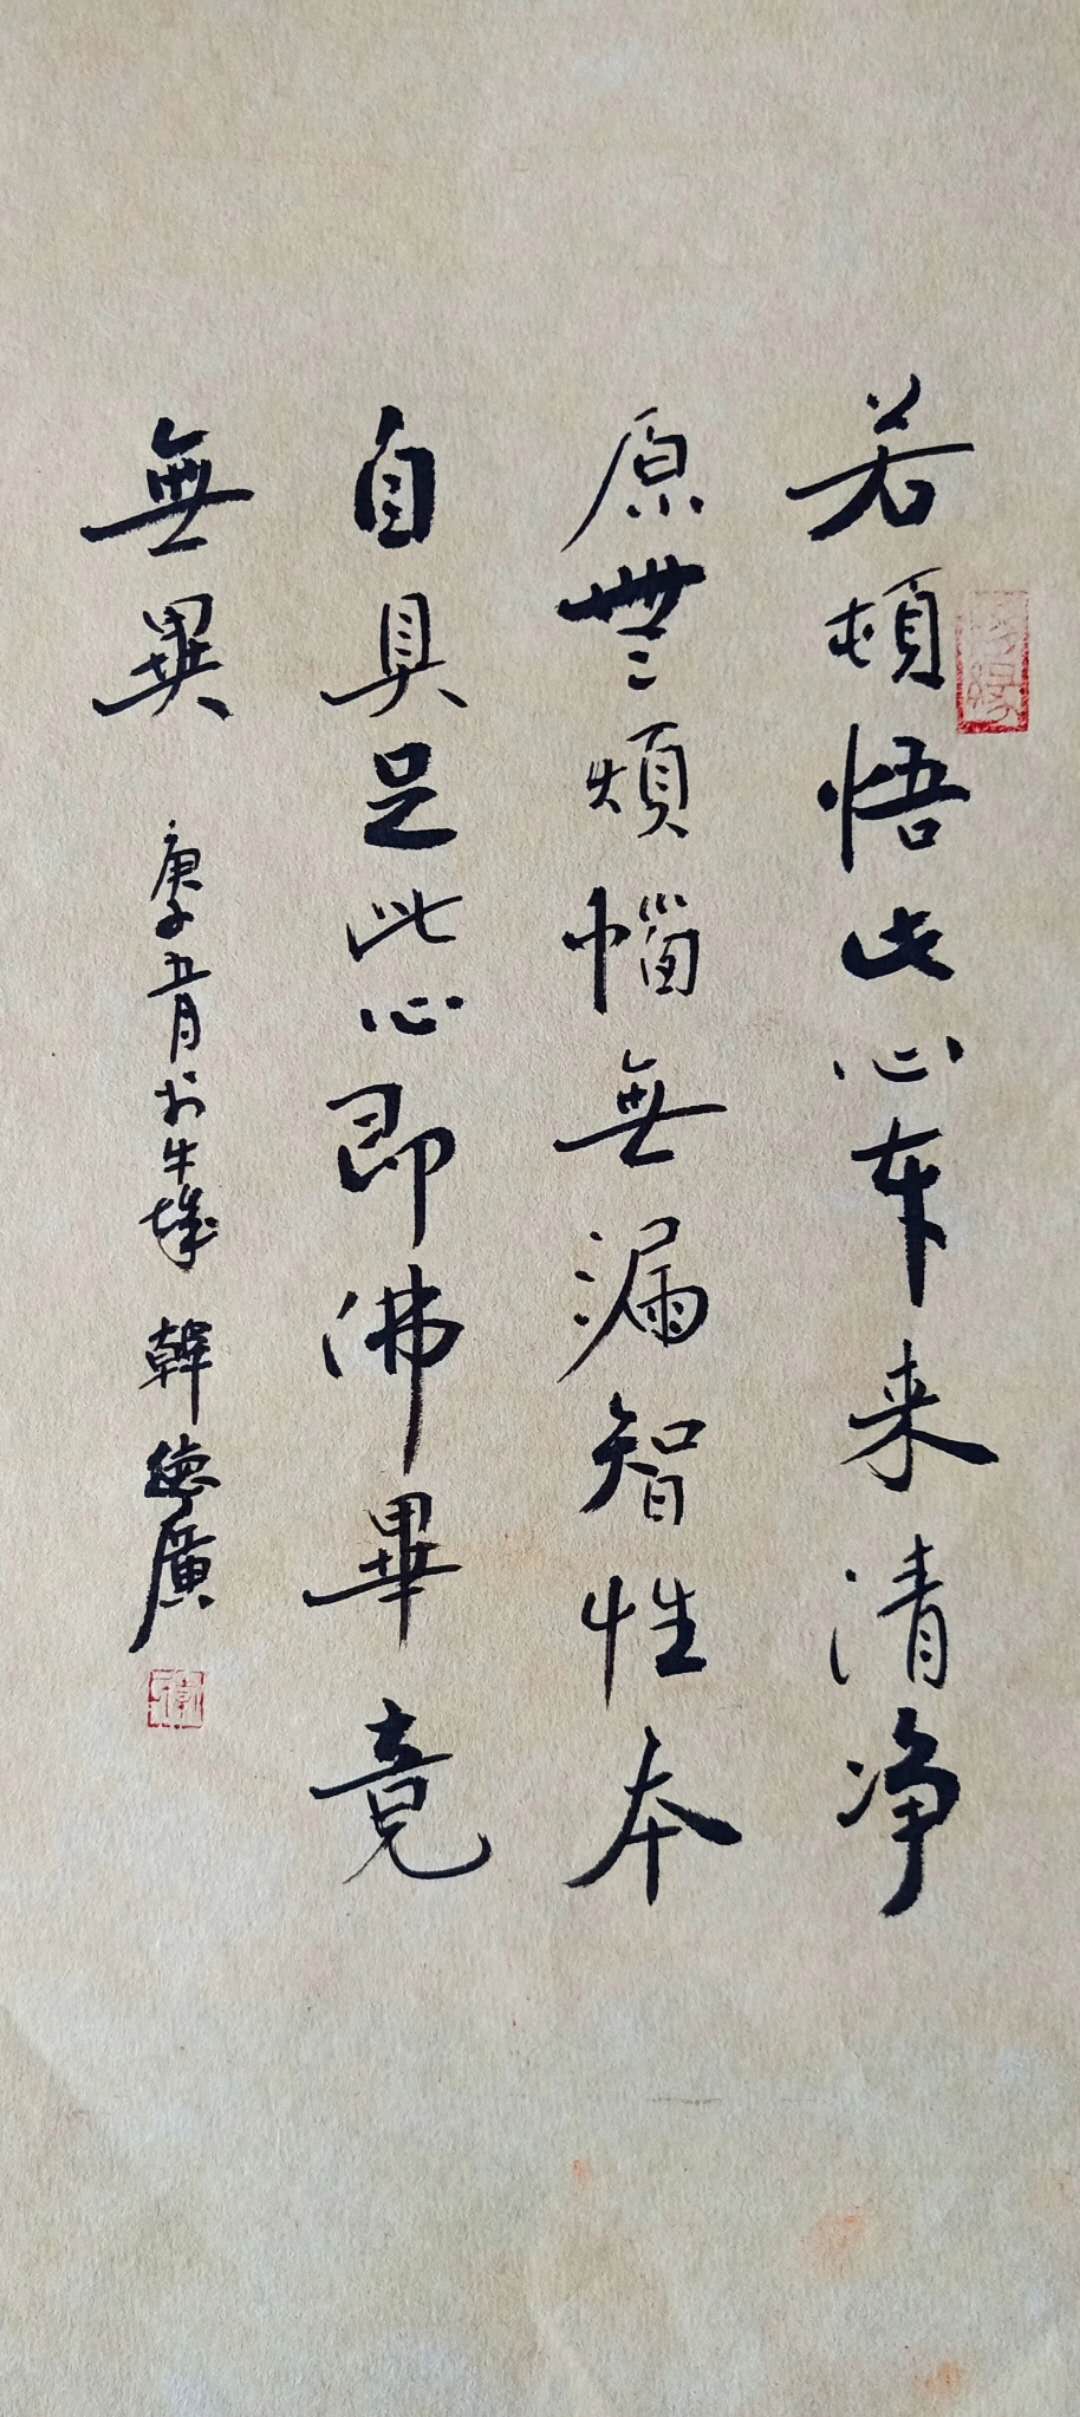 若頓悟此心本来清净
原無煩惱無漏智性本
自具足此心即佛畢竟
無異
庚子五月於牛城 韓德廣